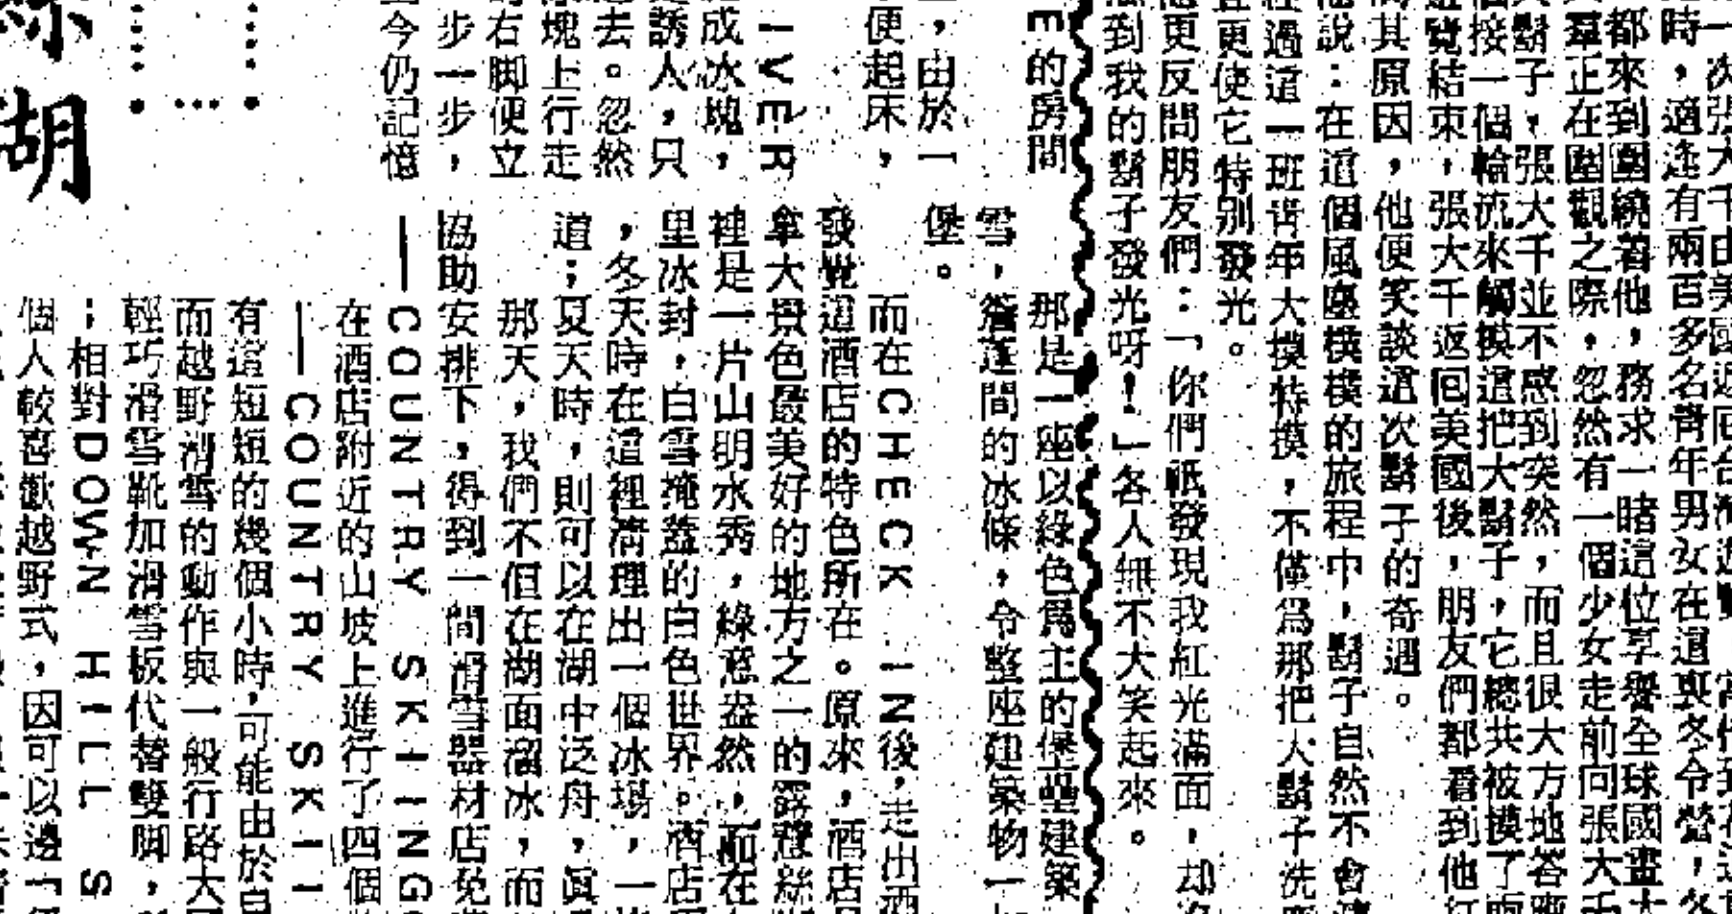 一次張大千由美國返回台灣
時，適逢有兩百多名青年男女在這與冬令營，各
都來到圍繞着他，務求一睹這位享譽全球國畫大
羣正在圍觀之際，忽然有一個少女走前向張大千
鬍子，張大千並不感到突然，而且很大方地答應
接一個輪流來觸摸這把大鬍子，它總共被摸了兩
遊覽結束，張大千返回美國後，朋友們都看到他紅
其原因，他便笑談這次鬍子的奇遇。
他說：在這個風塵樸樸的旅程中，鬍子自然不會
經過這一班青年大摸特摸，不僅爲那把大鬍子洗
更使它特別發光。
他更反問朋友們：「你們祇發現我紅光滿面，却
感到我的鬍子發光呀！」各人無不大笑起來。
E的房間
，由於一
便起床，
IVER
成冰塊，
誘人，只
去。忽然
塊上行走
右脚便立
步一步，
今仍記憶
湖
那是一座以綠色爲主的堡壘建築
雪，簷蓬間的冰條，令整座建築物一
堡。
而在CHECK IN後，走出酒
發覺這酒店的特色所在。原來，酒店
拿大景色最美好的地方之一的露薏絲湖
裡是一片山明水秀，綠意盎然，而在
里冰封，白雪掩蓋的白色世界。酒店
，冬天時在這裡清理出一個冰場，一
道；夏天時，則可以在湖中泛舟，眞
那天，我們不但在湖面溜冰，而
協助安排下，得到一間滑雪器材店免
——COUNTRY SKIING
在酒店附近的山坡上進行了四個
——COUNTRY SKII
有這短短的幾個小時，可能由於自
而越野滑雪的動作與一般行路大同
輕巧滑雪靴加滑雪板代替雙脚，
；相對DOWN HILL S
個人較喜歡越野式，因可以邊「行